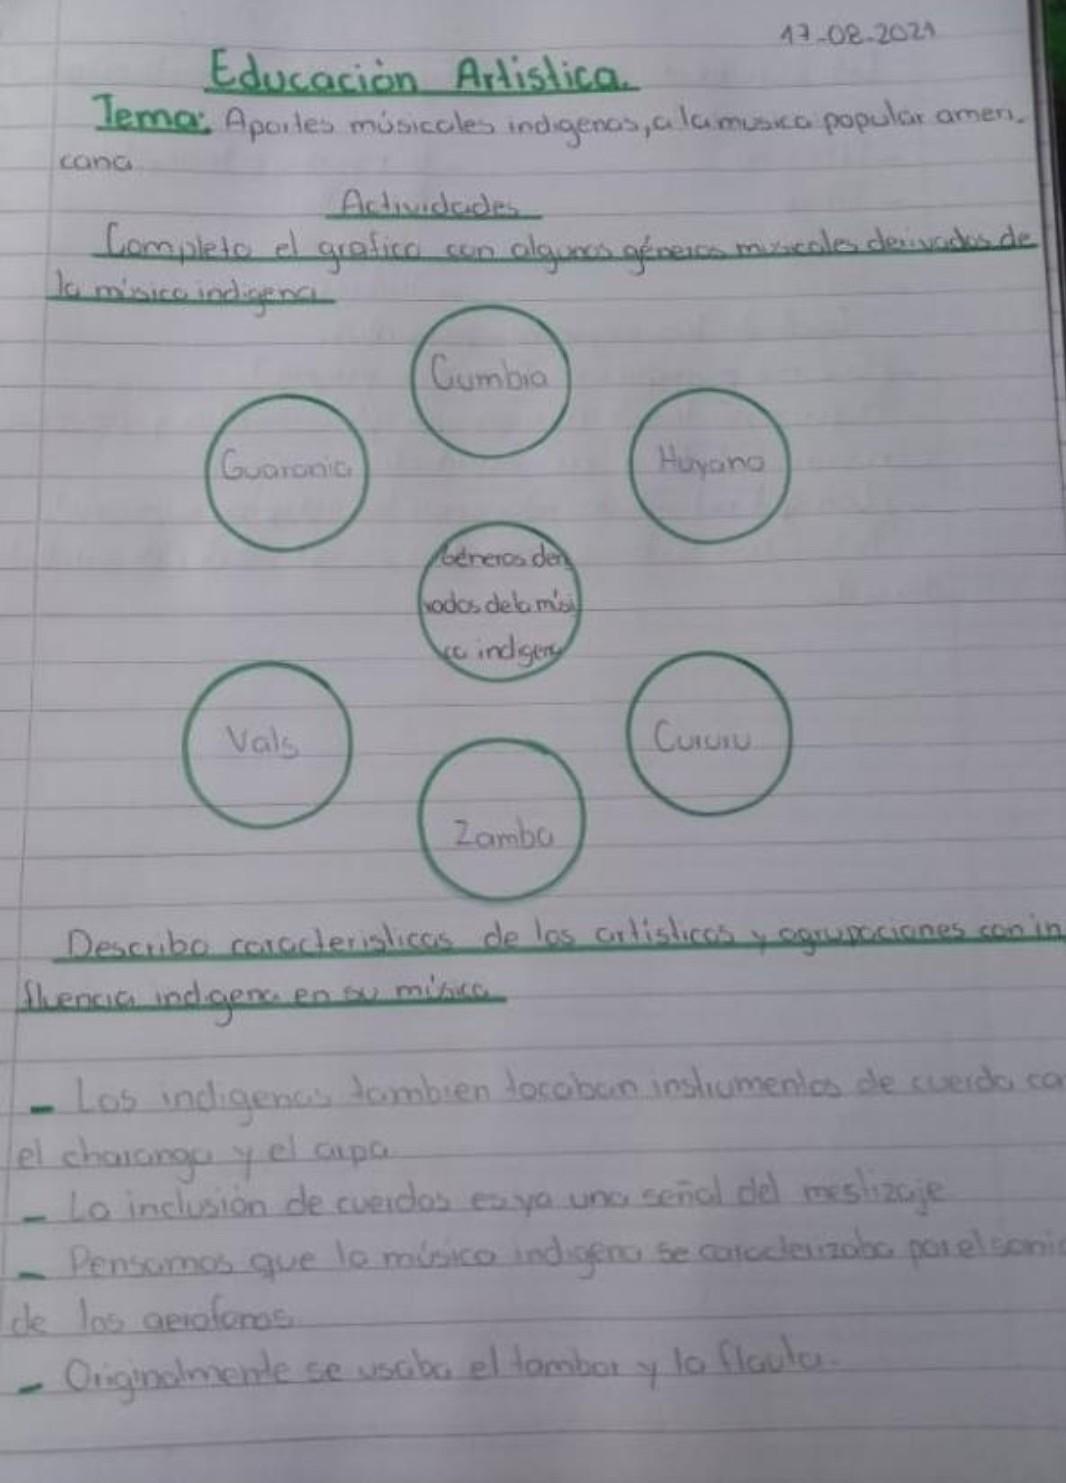 17-08-2021
Educación Artistica.
Tema: Aportes músicales indigenas, a la musica popular ameri-
cana
Actividades
Completo el grafico con algunos géneros musicales derivados de
la música indigena
Cumbia
Guarania
Huyano
Géneros deri
vados de la músi
ca indigena
Vals
Cururu
Zamba
Describo caracteristicas de los artísticos y agrupaciones con in
fluencia indigena en su música
- Los indigenas tambien tocaban instrumentos de cuerda co
el charango y el arpa
- La inclusión de cuerdas es ya una señal del mestizaje
- Pensamos que la música indigena se caracterizaba por el soni
de los aerofonos
- Originalmente se usaba el tambor y la flauta.